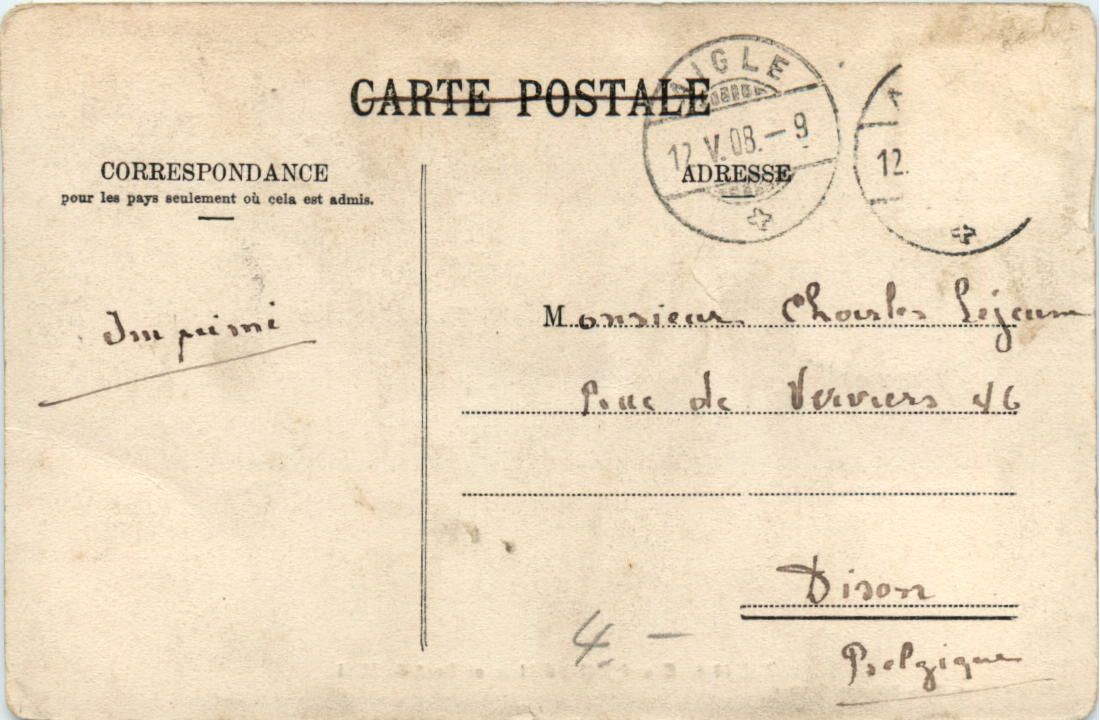 CARTE POSTALE
AIGLE
12.V.08.–9
12.
CORRESPONDANCE
pour les pays seulement où cela est admis.
ADRESSE
Imprimé
Monsieur Charles Lejeune
Rue de Verviers 46
Dison
Belgique
4.–